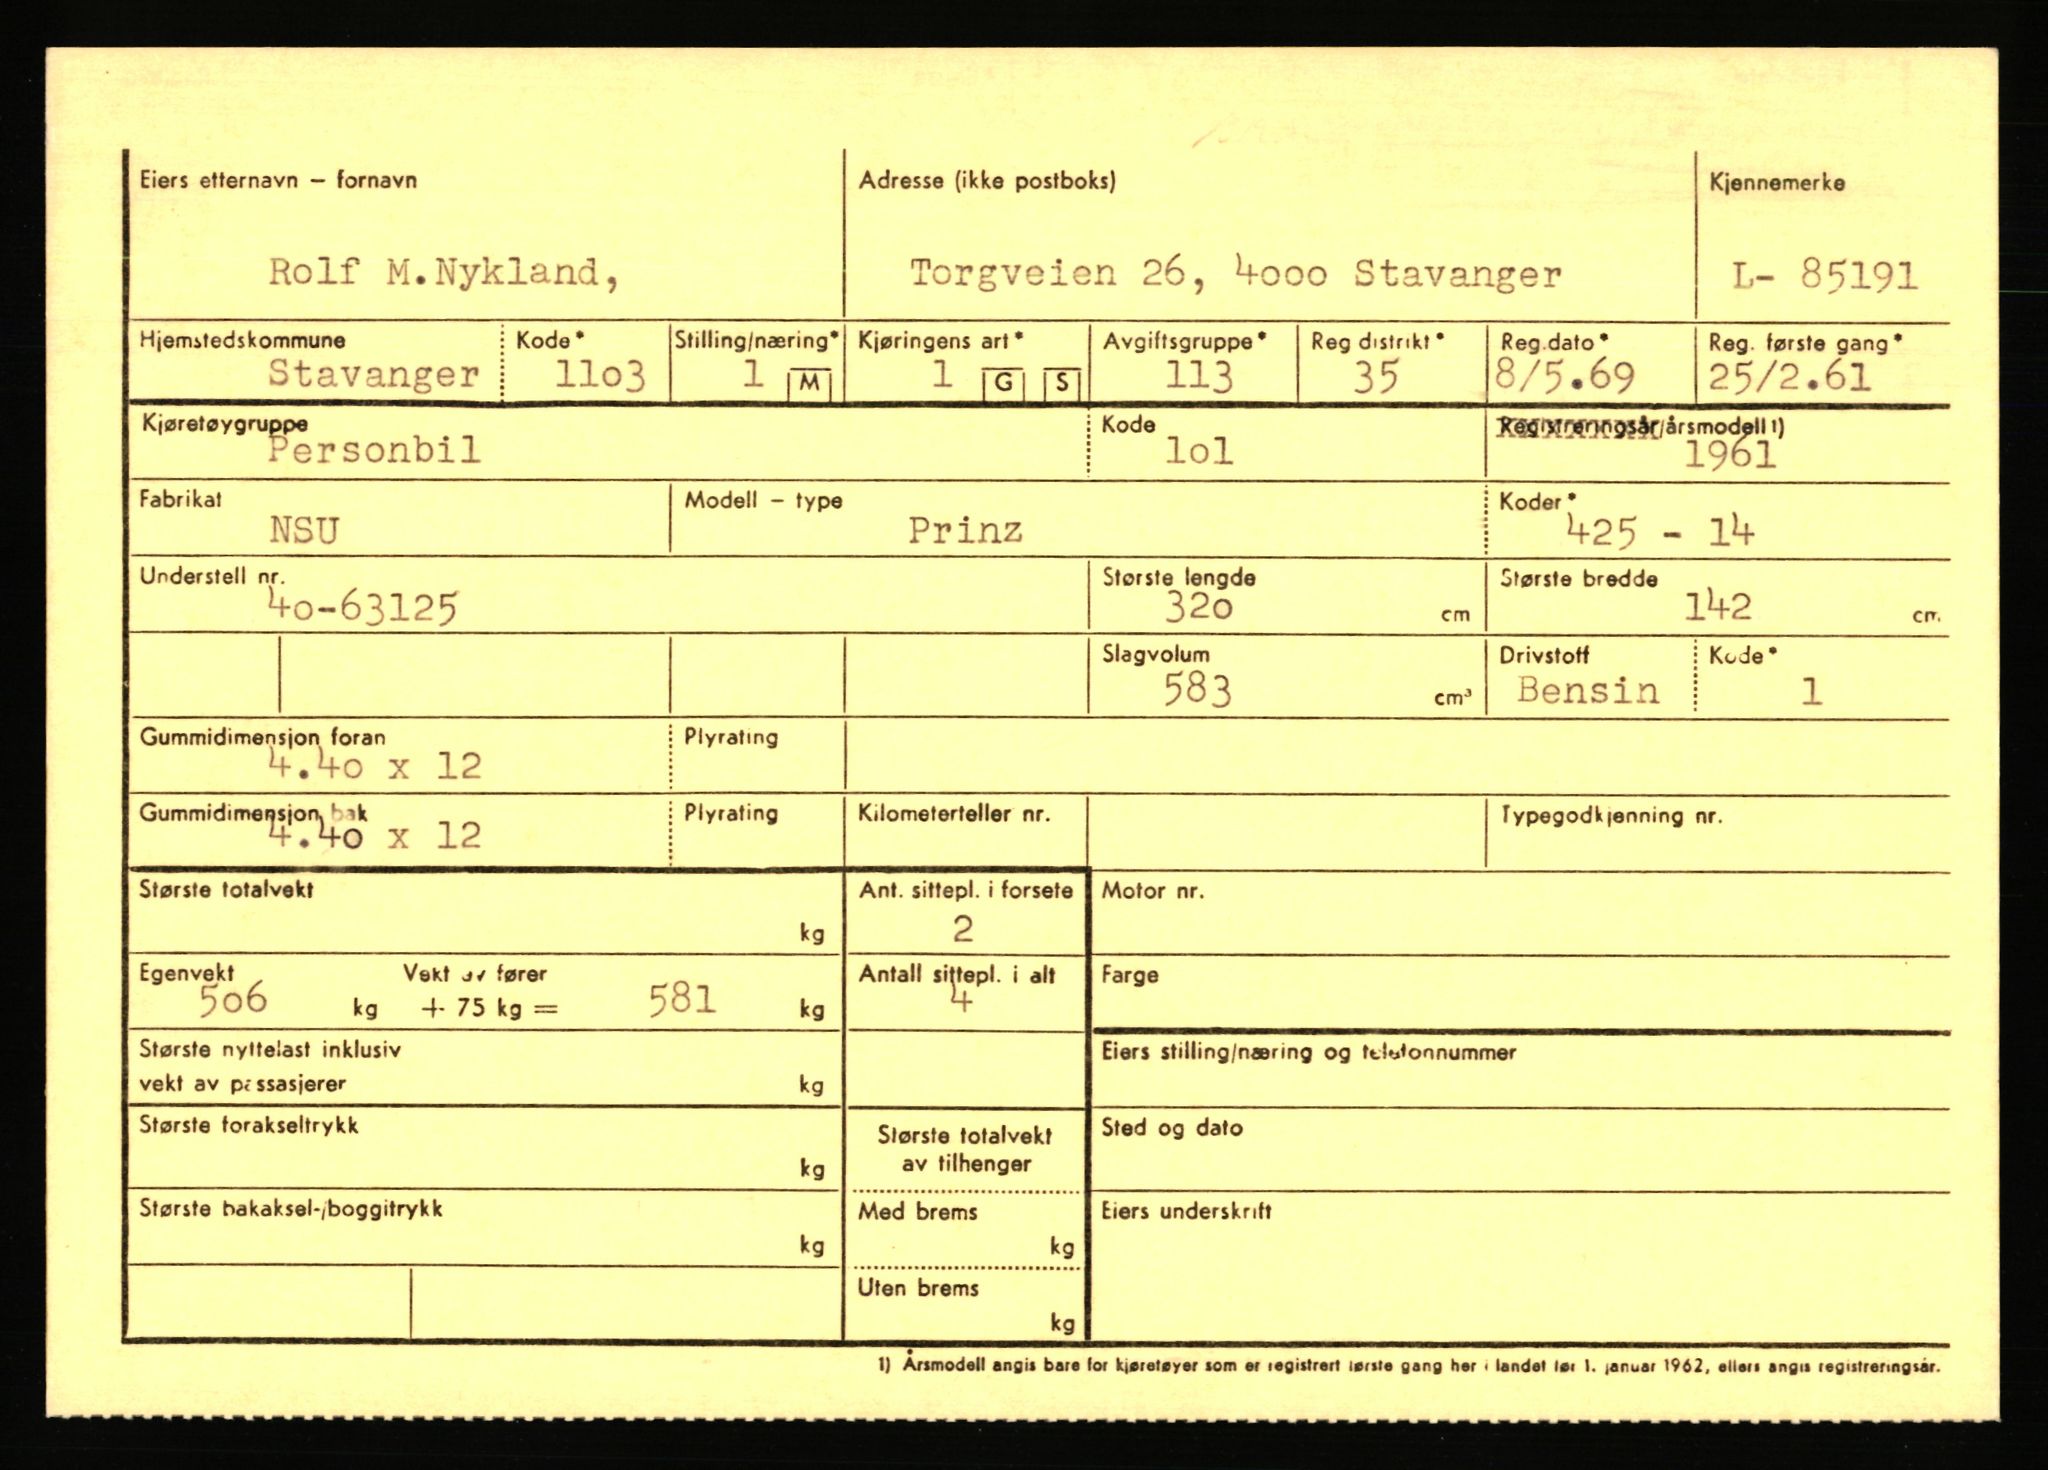 Eiers etternavn – fornavn Adresse (ikke postboks) Kjennemerke
Rolf M.Nykland, Torgveien 26, 4000 Stavanger L- 85191
Hjemstedskommune Kode* Stilling/næring* Kjøringens art* Avgiftsgruppe* Reg distrikt* Reg.dato* Reg. første gang*
Stavanger 1103 1 M 1 G S 113 35 8/5.69 25/2.61
Kjøretøygruppe Kode Registreringsår/årsmodell 1)
Personbil 101 1961
Fabrikat Modell – type Koder*
NSU Prinz 425 - 14
Understell nr. Største lengde Største bredde
40-63125 320 cm 142 cm
Slagvolum Drivstoff Kode*
583 cm³ Bensin 1
Gummidimensjon foran Plyrating
4.40 x 12
Gummidimensjon bak Plyrating Kilometerteller nr. Typegodkjenning nr.
4.40 x 12
Største totalvekt Ant. sittepl. i forsete Motor nr.
kg 2
Egenvekt Vekt av fører Antall sittepl. i alt Farge
506 kg + 75 kg = 581 kg 4
Største nyttelast inklusiv Eiers stilling/næring og telefonnummer
vekt av passasjerer kg
Største forakseltrykk Største totalvekt Sted og dato
kg av tilhenger
Største bakaksel-/boggitrykk Med brems Eiers underskrift
kg kg
Uten brems
kg
1) Årsmodell angis bare for kjøretøyer som er registrert første gang her i landet før 1. januar 1962, ellers angis registreringsår.